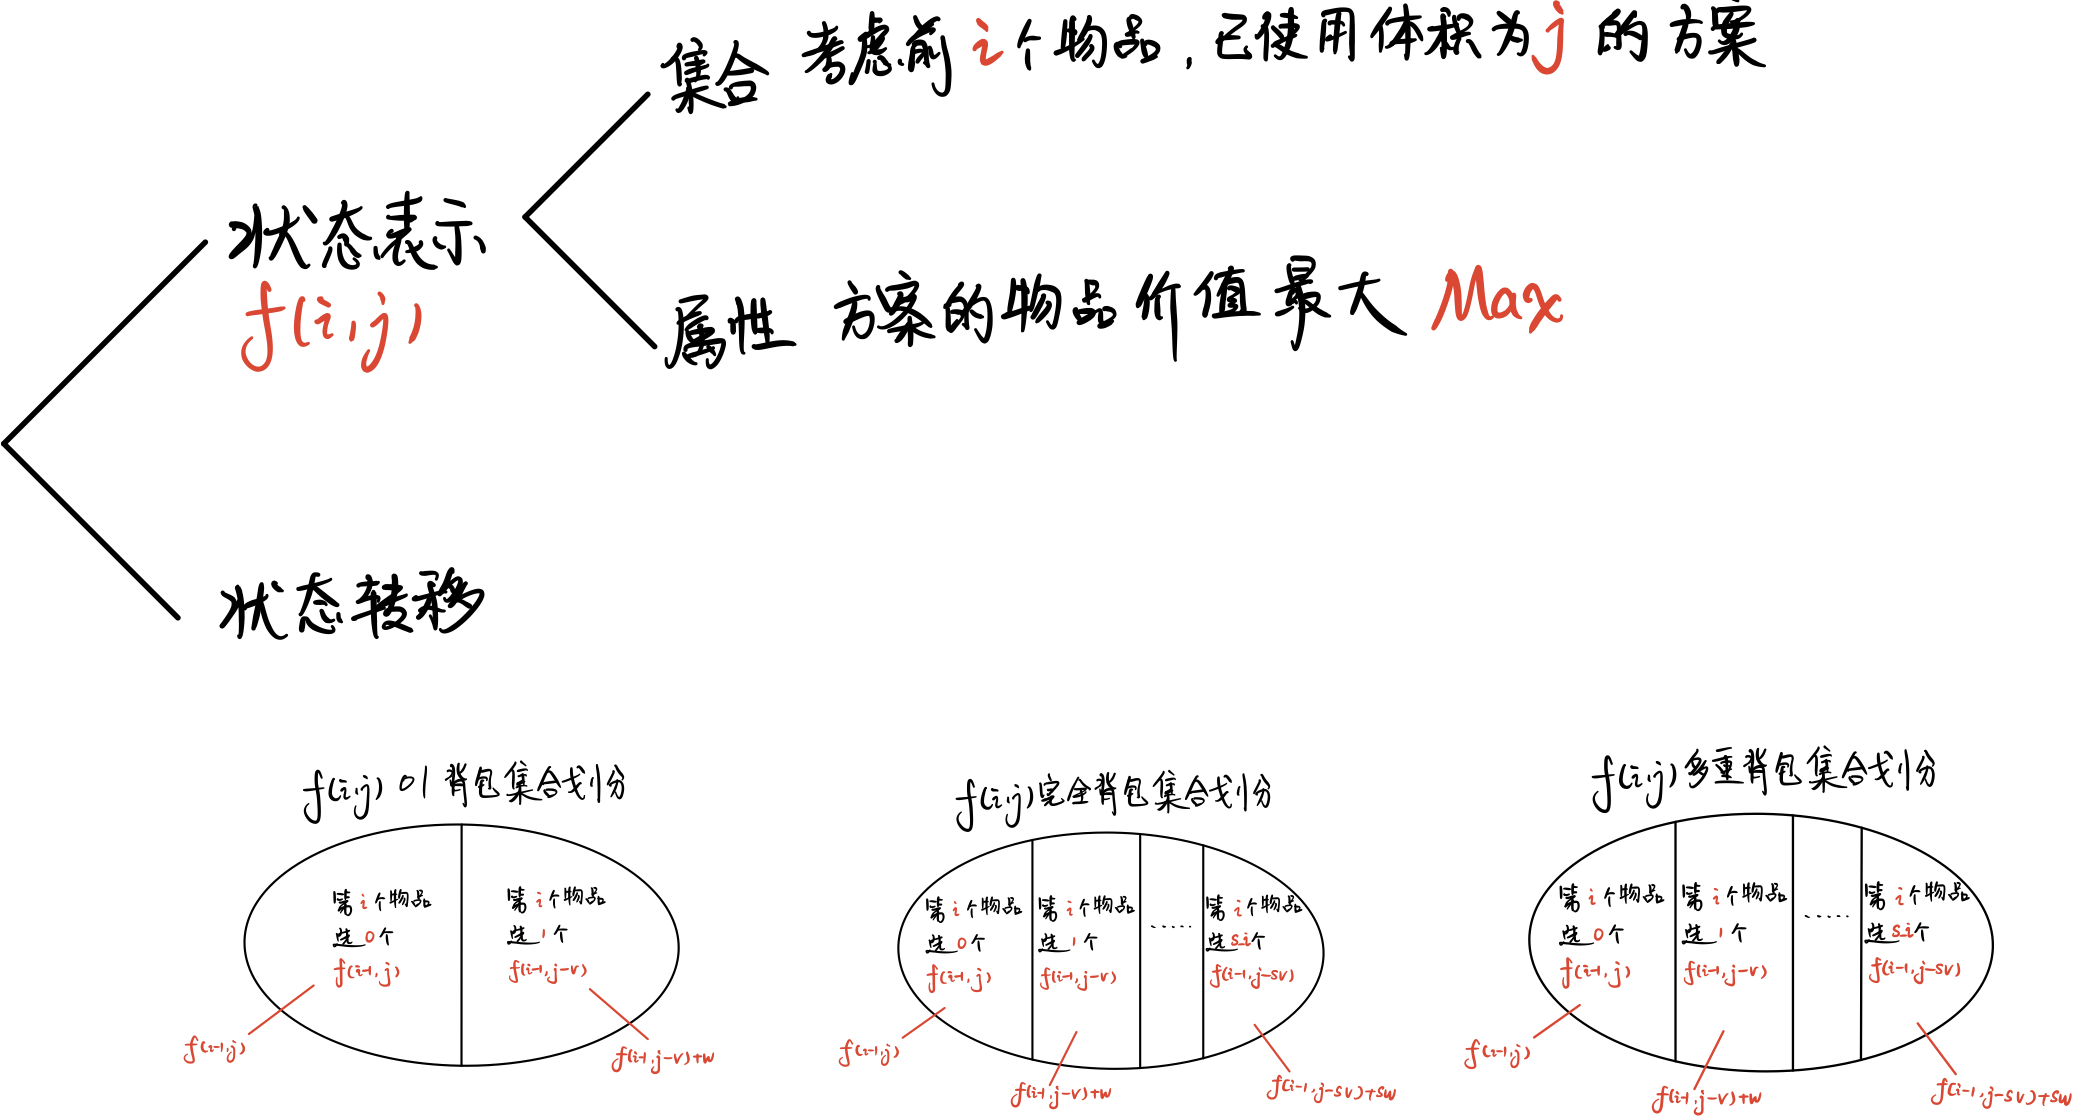 集合 考虑前 i 个物品,已使用体积为 j 的方案
状态表示
f(i,j)
属性 方案的物品价值最大 Max
状态转移
f(i,j) 01背包集合划分
第i个物品
选0个
f(i-1,j)
第i个物品
选1个
f(i-1,j-v)
f(i-1,j)
f(i-1,j-v)+w
f(i,j)完全背包集合划分
第i个物品
选0个
f(i-1,j)
第i个物品
选1个
f(i-1,j-v)
......
第i个物品
选s_i个
f(i-1,j-sv)
f(i-1,j)
f(i-1,j-v)+w
f(i-1,j-sv)+sw
f(i,j)多重背包集合划分
第i个物品
选0个
f(i-1,j)
第i个物品
选1个
f(i-1,j-v)
.....
第i个物品
选s_i个
f(i-1,j-sv)
f(i-1,j)
f(i-1,j-v)+w
f(i-1,j-sv)+sw